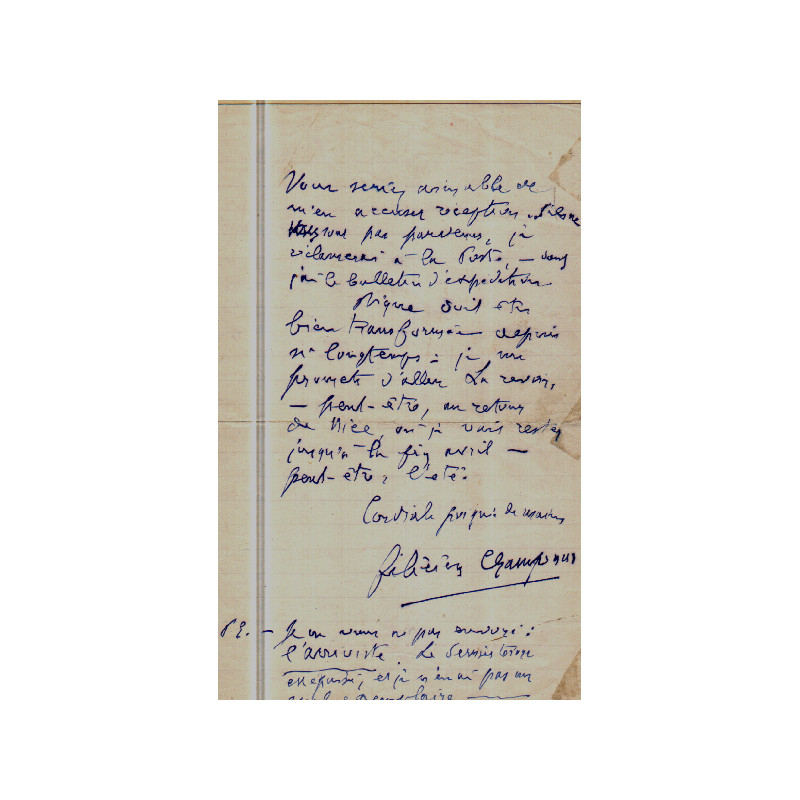 Vous seriez aimable de
m'en accuser réception. S'ils ne
vous sont pas parvenus, je
réclamerai à la Poste, — dont
j'ai le bulletin d'expédition.
doit être
bien transformée depuis
si longtemps : je me
promets d'aller la revoir,
— peut-être, au retour
de Nice, où je vais rester
jusqu'à la fin avril —
peut-être, l'été.
Cordiale poignée de mains
Félicien Champsaur
P.S. — Je ne vous ai pas envoyé :
l'arriviste. Le dernier tirage
est épuisé, et je n'en ai pas un
seul exemplaire